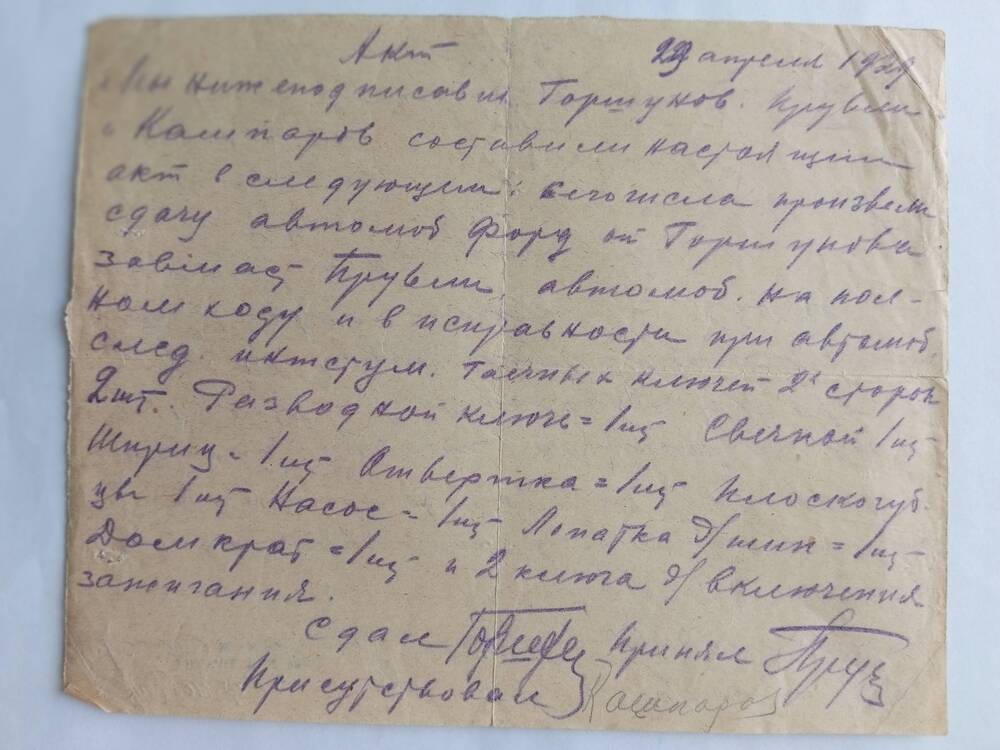 Акт 29 апреля 1929
Мы нижеподписавш. Горшунов. Прувли
и Кашпаров составили настоящий
акт в следующем: сего числа произвели
сдачу автомоб Форд от Горшунова
завмаст Прувли, автомоб. на пол-
ном ходу и в исправности при автомоб.
след. инстум. Гаечных ключей 2х сторон
2шт. Разводной ключ = 1шт Свечной 1шт
Шприц = 1шт Отвертка = 1шт Плоскогуб-
цы 1шт Насос = 1шт Лопатка д/шин = 1шт
Домкрат = 1шт и 2 ключа д/ включения
зажигания.
Сдал Принял
Присутствовал Кашпаров